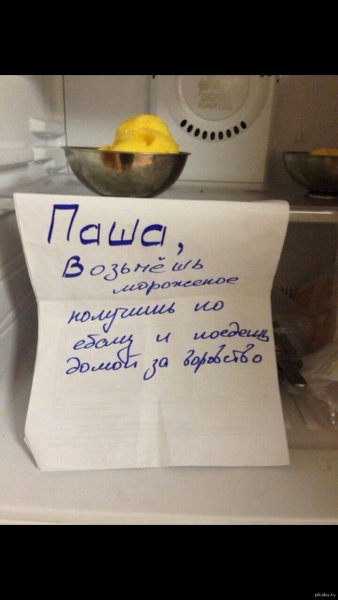 DIGITAL
POWER COOL
Паша,
Возьмёшь
мороженое
получишь по
ебалу и поедешь
домой за воровство
pikabu.ru